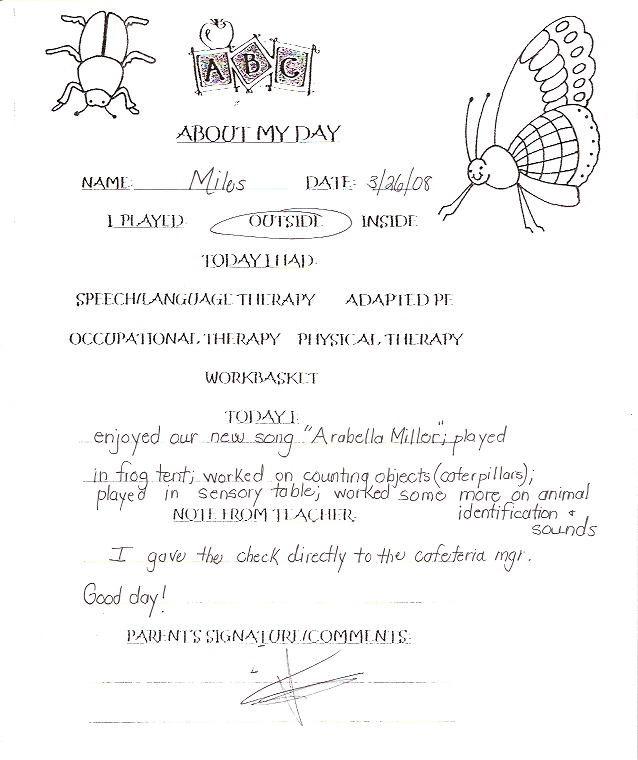 A B C
ABOUT MY DAY
NAME: Miles DATE: 3/26/08
I PLAYED: OUTSIDE INSIDE
TODAY I HAD:
SPEECH/LANGUAGE THERAPY ADAPTED PE
OCCUPATIONAL THERAPY PHYSICAL THERAPY
WORKBASKET
TODAY I:
enjoyed our new song "Arabella Miller"; played
in frog tent; worked on counting objects (caterpillars);
played in sensory table; worked some more on animal
identification & sounds
NOTE FROM TEACHER:
I gave the check directly to the cafeteria mgr.
Good day!
PARENT'S SIGNATURE/COMMENTS: